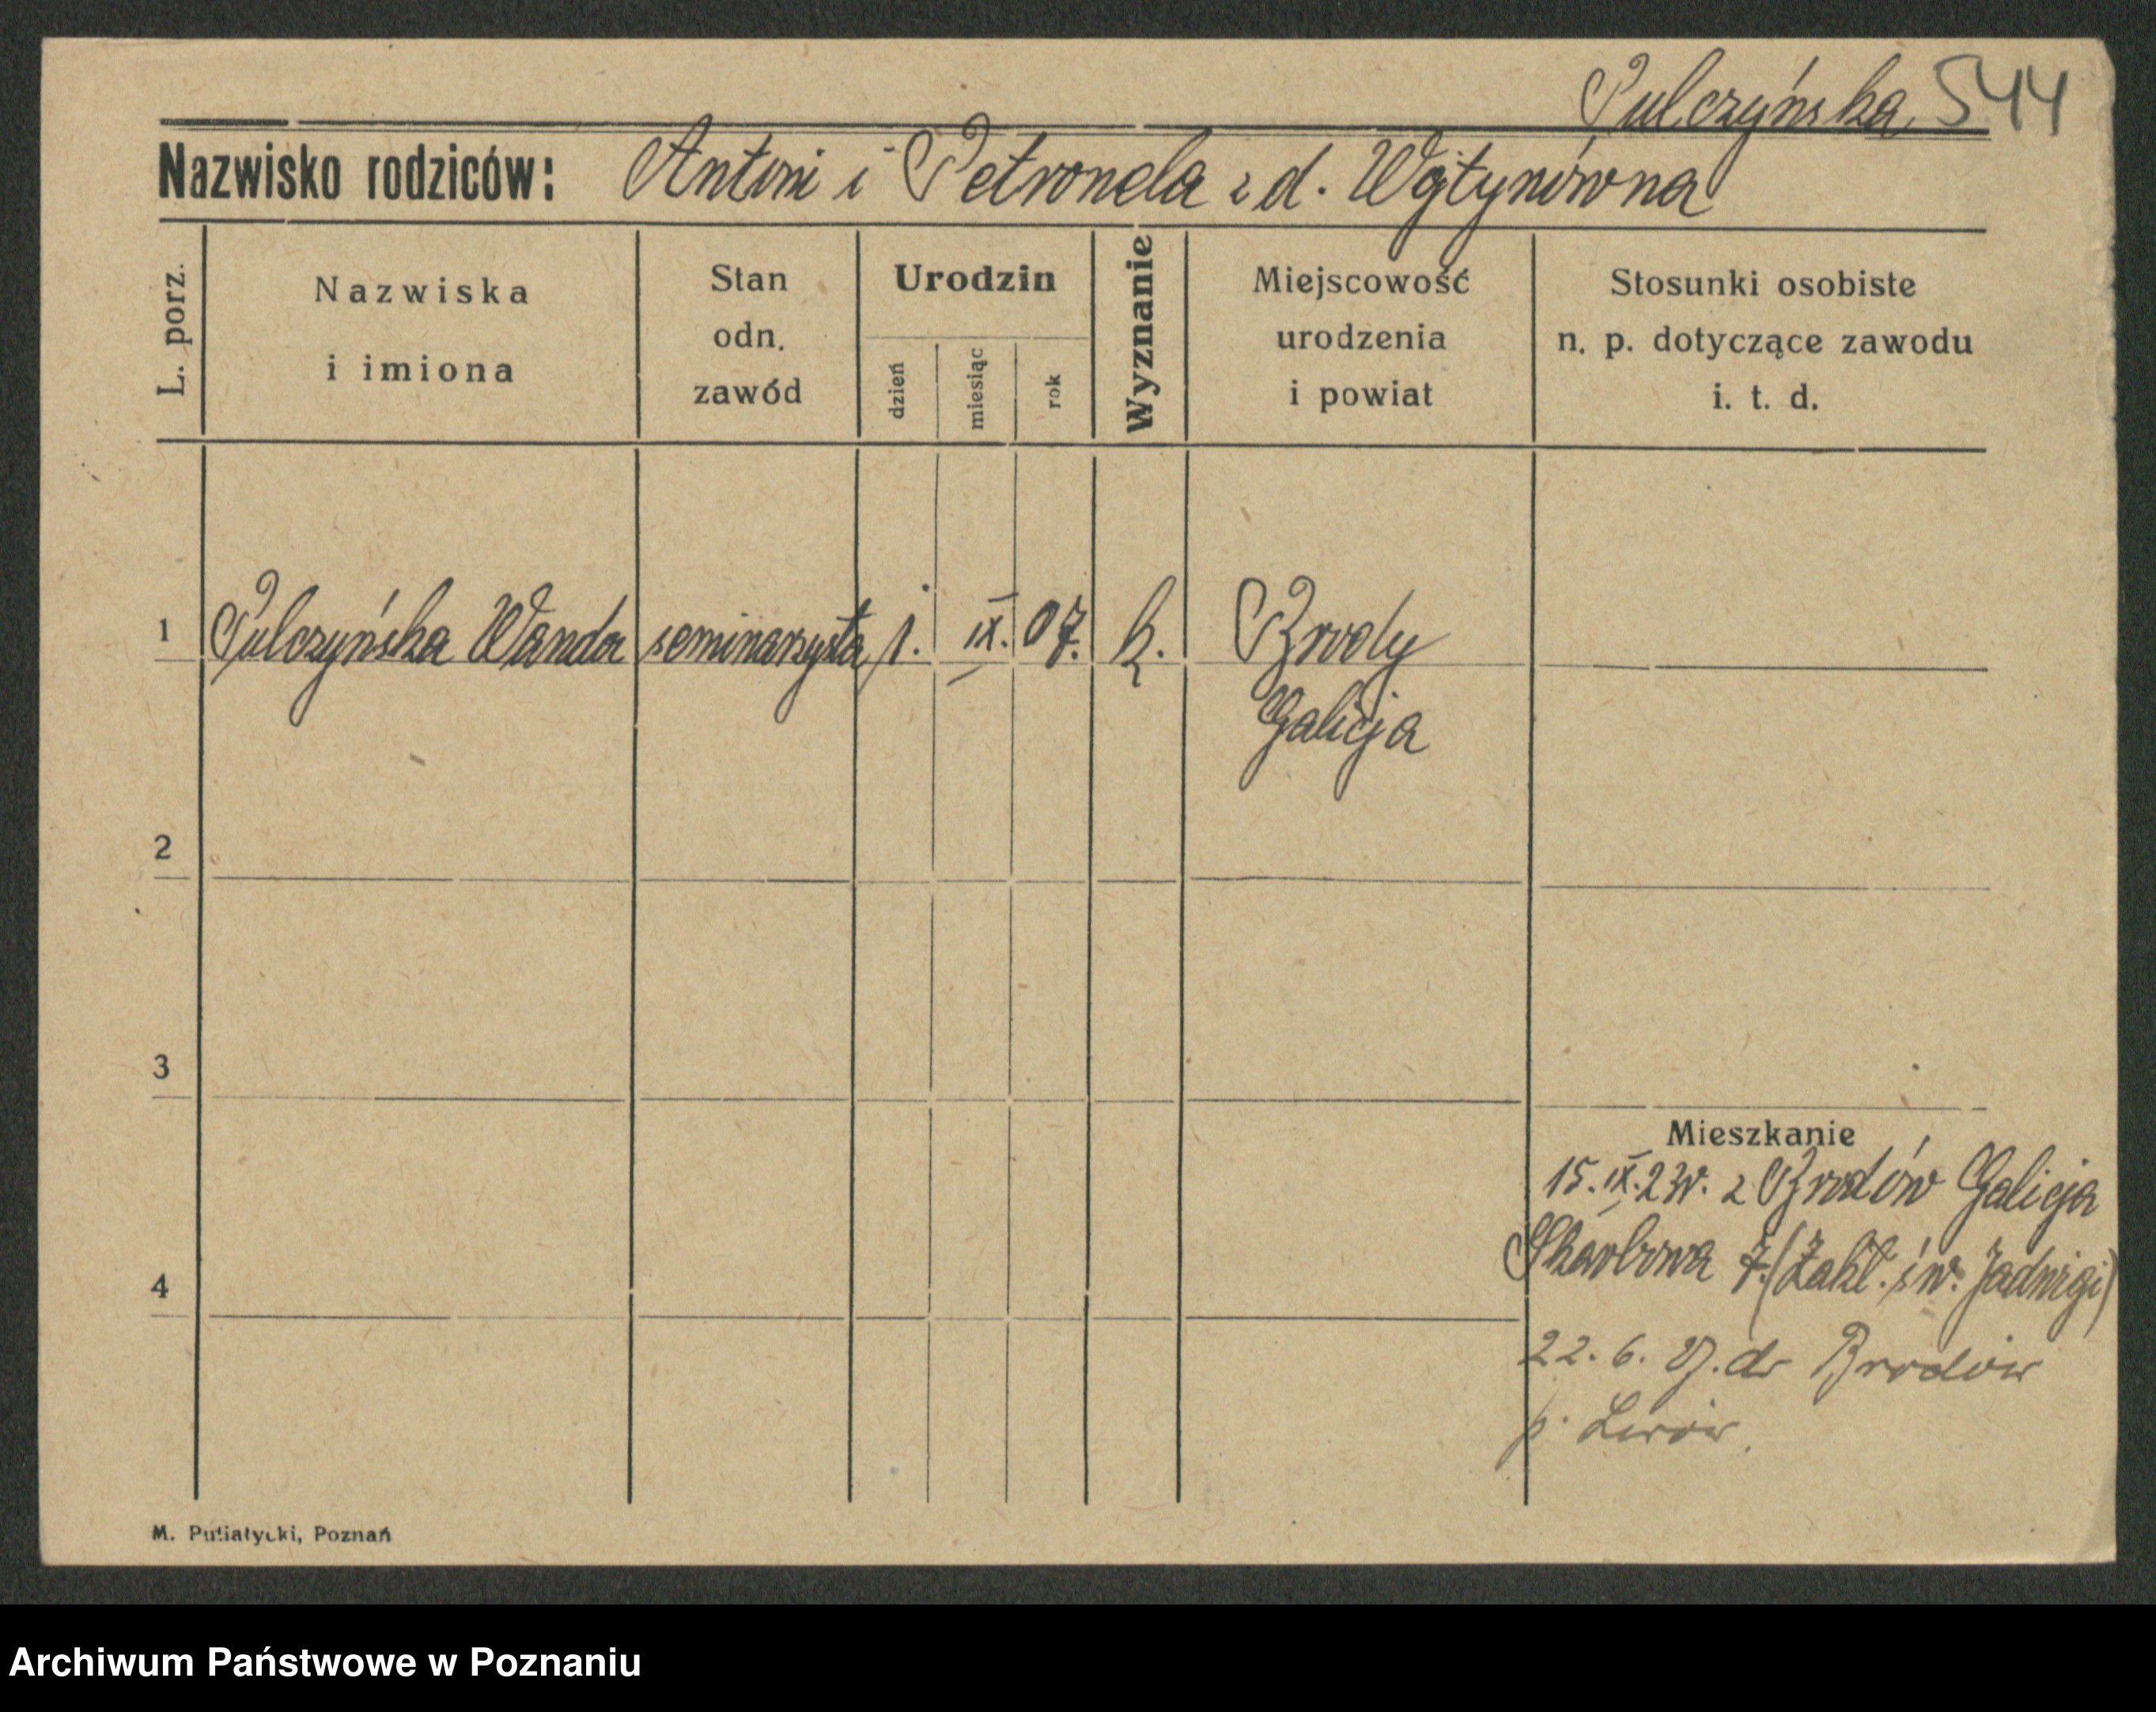 Pulczyńska 544
Nazwisko rodziców: Antoni i Petronela z d. Wójtynówna
L. porz.
Nazwiska
i imiona
Stan
odn.
zawód
Urodzin
dzień
miesiąc
rok
Wyznanie
Miejscowość
urodzenia
i powiat
Stosunki osobiste
n. p. dotyczące zawodu
i. t. d.
1 Pulczyńska Wanda seminarzysta 1. IX. 07. k. Brody
Galicja
2
3
4
Mieszkanie
15.IX.23r. z Brodów Galicja
Skarbowa 7. (Zakł. św. Jadwigi)
22. 6. 27. do Brodów
p. Lwów.
M. Putiatycki, Poznań
Archiwum Państwowe w Poznaniu